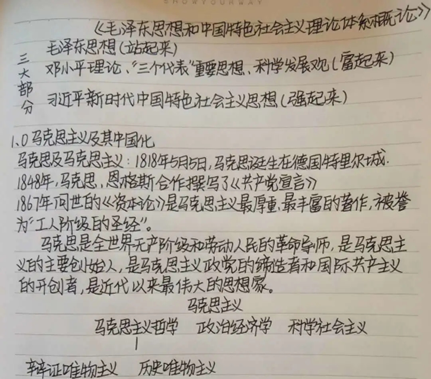 《毛泽东思想和中国特色社会主义理论体系概论》
毛泽东思想(站起来)
三大部分
邓小平理论、"三个代表"重要思想、科学发展观(富起来)
习近平新时代中国特色社会主义思想(强起来)
1.0 马克思主义及其中国化
马克思及马克思主义:1818年5月5日,马克思诞生在德国特里尔城.
1848年,马克思,恩格斯合作撰写了《共产党宣言》
1867年问世的《资本论》是马克思主义最厚重、最丰富的著作,被誉
为"工人阶级的圣经"。
马克思是全世界无产阶级和劳动人民的革命导师,是马克思主
义的主要创始人,是马克思主义政党的缔造者和国际共产主义
的开创者,是近代以来最伟大的思想家。
马克思主义
马克思主义哲学 政治经济学 科学社会主义
辩证唯物主义 历史唯物主义